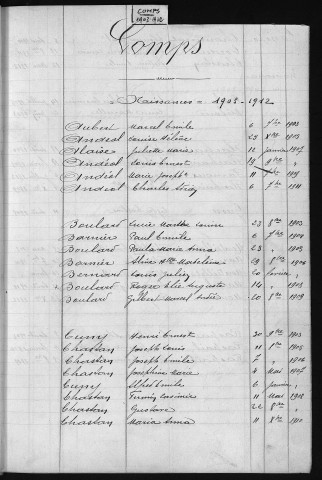 COMPS
1903-1912
Comps
= Naissances = 1903-1912
Aubert Marcel Emile 6 7bre 1903
Andéol Louise Hélène 23 8bre 1903
Juliette Marie 12 janvier 1907
Andéol Louis Ernest 19
Andéol Marie Joseph 11 1909
Andéol Charles 6 7bre 1911
Boulard Lucie Marthe 23 8bre 1903
Barnier Paul Emile 6 7bre 1904
Boulard Paula Maria Anna 23 1905
Barnier Aline Madeleine 29 8bre 1906
Bernard Louis Julien 20 février
Boulard Roger Elie Auguste 14 1908
Boulard Gilbert Marcel André 20 8bre 1909
Cuny Henri Ernest 30 1903
Chastan Joseph Louis 11 8bre 1905
Chastan Joseph Emile 7 1906
Chastan Joséphine Marie 4 Mai 1907
Cuny Albert Emile 6 janvier
Chastan Firmin Casimir 11 Mai 1908
Chastan Gustave 22 8bre
Chastan Maria Anna 11 8bre 1910